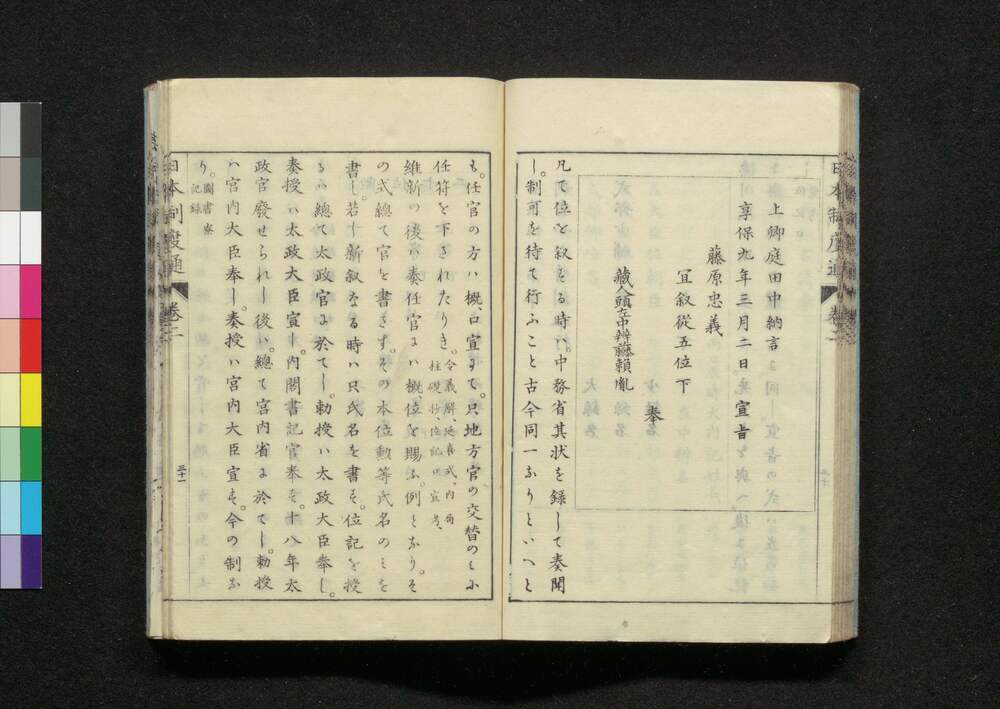 日本制度通 卷二
上卿庭田中納言
享保九年三月二日 宣旨
藤原忠義
宜叙從五位下
藏人頭左中辨藤賴胤 奉
凡て位を叙をる時ハ。中務省其状を録して奏聞
し。制可を待て行ふこと古今同一なりといへと
も。任官の方ハ概口宣まて。只地方官の交替のミに
任符を下されたりき。令義解、延喜式、内局
柱礎抄、位記口宣考、
維新の後ハ奏任官まハ概位を賜ふ。例となり。そ
の式總て官を書さす。その本位勳等氏名のミを
書し。若し新叙なる時ハ只氏名を書そ。位記を授
るハ總て太政官ま於てし。勅授ハ太政大臣奉し。
奏授ハ太政大臣宣し。内閣書記官奉を。十八年太
政官廢せられし後ハ。總て宮内省ま於てし。勅授
ハ宮内大臣奉し。奏授ハ宮内大臣宣を。今の制な
り。圖書寮
記録
日本制度通 卷二
三十一